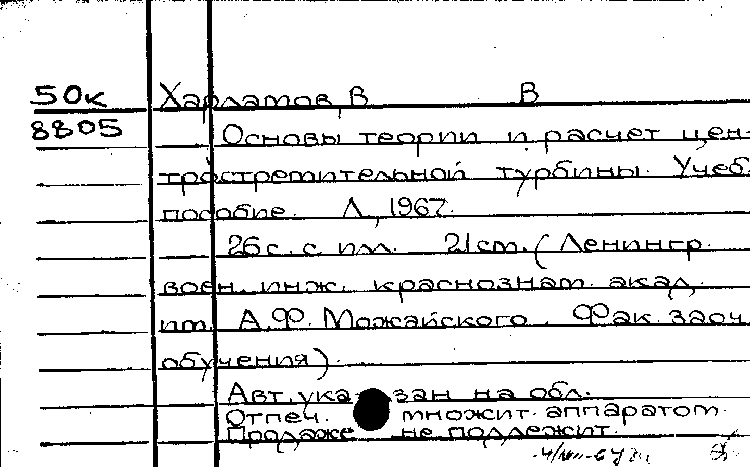 50к Харламов, В В
8805 Основы теории и расчет цен-
тростремительной турбины. Учеб.
пособие. Л., 1967.
26 с. с ил. 21 см. (Ленингр.
воен. инж. краснознам. акад.
им. А.Ф. Можайского. Фак. заоч.
обучения).
Авт. указан на обл.
Отпеч. множит. аппаратом.
Продаже не подлежит.